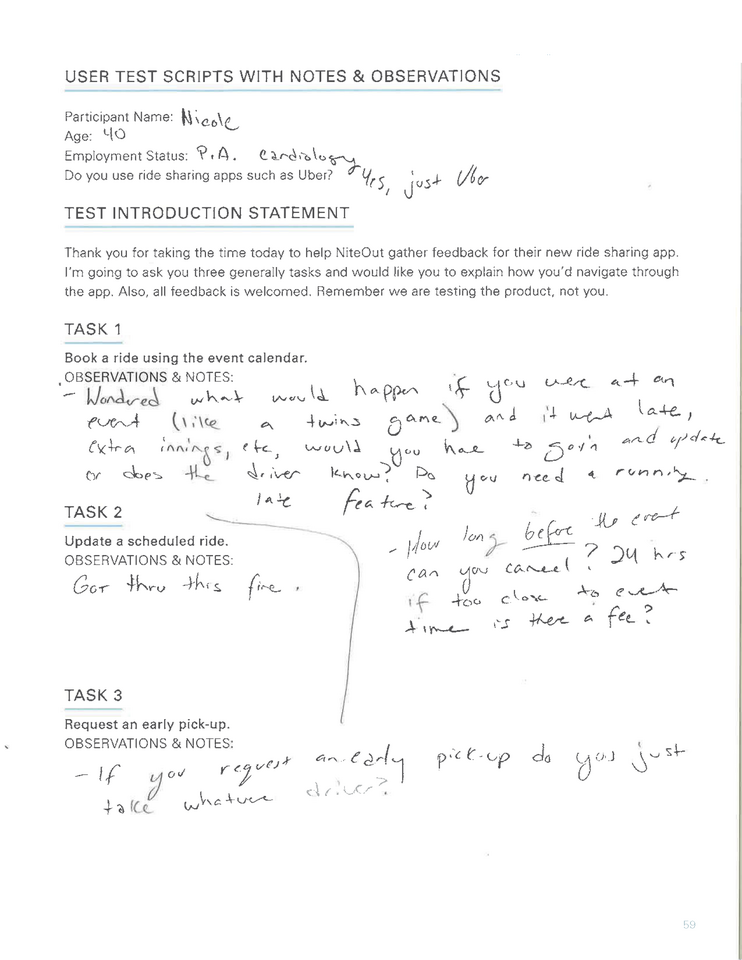 USER TEST SCRIPTS WITH NOTES & OBSERVATIONS
Participant Name: Nicole
Age: 40
Employment Status: P.A. cardiology
Do you use ride sharing apps such as Uber? Yes, just Uber
TEST INTRODUCTION STATEMENT
Thank you for taking the time today to help NiteOut gather feedback for their new ride sharing app.
I'm going to ask you three generally tasks and would like you to explain how you'd navigate through
the app. Also, all feedback is welcomed. Remember we are testing the product, not you.
TASK 1
Book a ride using the event calendar.
OBSERVATIONS & NOTES:
- Wondered what would happen if you were at an
event (like a twins game) and it went late,
extra innings, etc, would you have to go in and update
or does the driver know? Do you need a running
late feature?
TASK 2
Update a scheduled ride.
OBSERVATIONS & NOTES:
Got thru this fine.
- How long before the event
can you cancel? 24 hrs
if too close to event
time is there a fee?
TASK 3
Request an early pick-up.
OBSERVATIONS & NOTES:
- If you request an early pick-up do you just
take whatever driver?
59